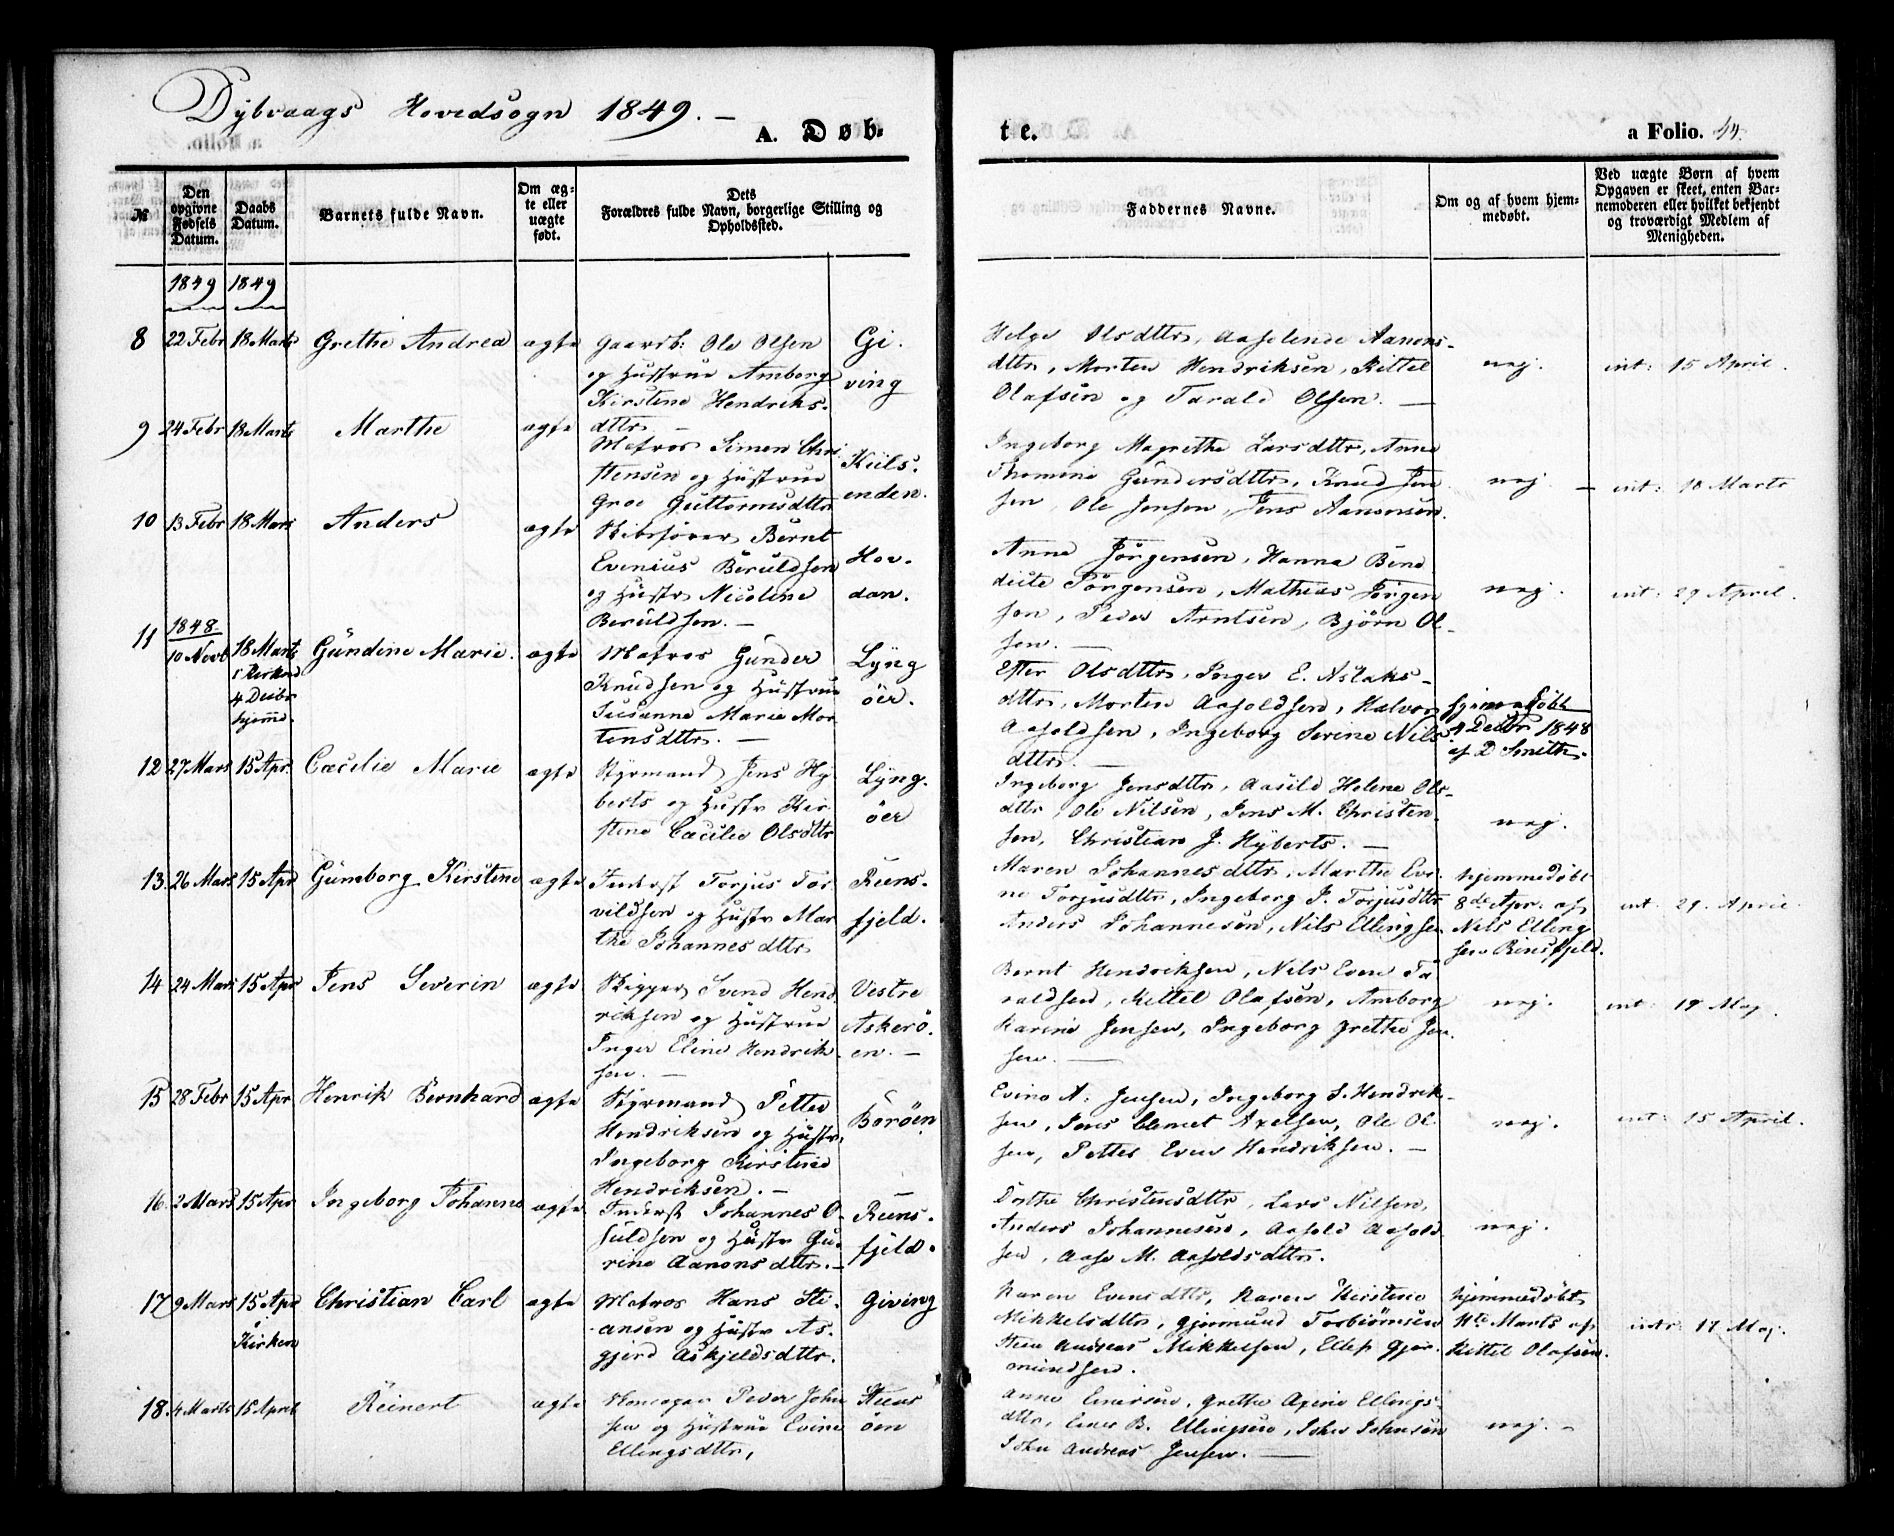 Dybvaags Hovedsogn 1849. –
A. Døb-
te.
a Folio. 44.
№
Den opgivne Fødsels Datum.
Daabs Datum.
Barnets fulde Navn.
Om ægte eller uægte født.
Dets Forældres fulde Navn, borgerlige Stilling og Opholdssted.
Faddernes Navne.
Om og af hvem hjemmedøbt.
Ved uægte Børn af hvem Opgaven er skeet, enten Barnemoderen eller hvilket bekjendt og troværdigt Medlem af Menigheden.
1849 1849
8 22 Febr 18 Marts Grethe Andrea ægte
Gaardb: Ole Olsen
og Hustrue Amborg
Kirstene Hendriks-
dttr –
Gi-
ving
Helge Olsdttr, Aaselende Aanons-
dttr, Morten Hendriksen, Kittel
Olafsen og Tarald Olsen. –
nej. int: 15 April.
9 24 Febr 18 Marts Marthe ægte
Matros Simen Chri
stensen og Hustrue
Groe Guttormsdttr
Kiils-
enden.
Ingeborg Magrethe Larsdttr, Anne
Thomine Gundersdttr, Knud Jen
sen, Ole Jensen, Jens Aanonsen.
nej – int: 18 Marts
10 13 Febr 18 Mars Anders ægte
Skibsfører Bernt
Evenius Beruldsen
og Hustr Nicoline
Beruldsen. –
Hov-
dan.
Anne Jörgensen, Hanna Bene
dicte Jörgensen, Mathias Jörgen
sen, Peder Arntsen, Björn Ol-
sen. –
nej. int: 29 April.
11 1848 10 Novb 18 Marts i Kirken 4 Decbr hjeme. Gundine Marie. ægte
Matros Gunder
Knudsen og Hustrue
Susanne Marie Mor
tensdttr. –
Lyng
öer.
Efter Olsdttr, Inger E. Nilaks-
dttr, Morten Aasoldsen, Halvor
Aasoldsen, Ingeborg Serine Nils
dttr. –
hjemmedøbt
4 Decbr 1848
af D Smith.
12 27 Mars 15 Apr. Cæcilie Marie ægte
Styrmand Jens Hy
berts og Hustr Kir-
stene Cæcilie Olsdttr
Lyng-
öer
Ingeborg Jensdttr, Aasild Helene Ols-
dttr, Ole Nilsen, Jens M. Christen-
sen, Christian J. Hyberts. –
nej.
13. 26 Mars 15 Apr Gunborg Kirstine ægte
Inderst Torjus Tor
vildsen og Hustr Mar
the Johannesdttr
Reens-
fjeld.
Maren Johannesdttr, Marthe Evi-
ne Torjusdttr, Ingeborg J. Torjusdttr
Anders Johannesen, Nils Ellingsen
hjemmedöbt
8de Apr. af
Nils Elling
sen Rinsfjeld.
int: 29. April.
14 24 Mars 15 Apr Jens Severin ægte
Skipper Svend Hend
riksen og Hustrue
Inger Eline Hendrik
sen. –
Vestre
Askerö-
en. –
Bernt Hendriksen, Nils Even Ta
raldsen, Kittel Olafsen, Amborg
Karine Jensen, Ingeborg Grethe Jen
sen. –
nej. int: 19 Maj.
15 28 Febr 15 Apr Henrik Bernhard ægte
Styrmand Petter
Hendriksen og Hustr,
Ingeborg Kirstine
Hendriksen. –
Boröen
Evine A. Jensen, Ingeborg S. Hendrik-
sen, Jens Clemet Axelsen, Ole Ol-
sen, Petter Even Hendriksen. –
nej. int: 15 April.
16. 2 Mars 15 Apr Ingeborg Johanne ægte
Inderst Johannes O-
suldsen og Hustr Gu-
rine Aanonsdttr. –
Reens-
fjeld.
Dorthe Christensdttr, Lars Nilsen,
Anders Johannesen, Aasold Aasold
sen, Aase M. Aasoldsdttr.
nej.
17 9 Mars 15 Apr i Kirken Christian Carl ægte
Matros Hans Sti-
ansen og Hustr As-
gjerd Askjeldsdttr.
Giving
Karen Evensdttr, Karen Kirstine
Mikkelsdttr, Gjermund Torbiörnsen
Sten Andreas Mikkelsen, Ellef Gjer-
mundsen.
hjemmedöbt
11te Marts af
Kittel Olafsen.
intr: 17 Maj.
18. 4 Marts 15 April Reinert ægte
Peder John
sen og Hustrue Evine
Ellingsdttr,
Steens
öen
Anne Einersen, Grethe Axine Ellings-
dttr, Einer B. Ellingsen, John Johnsen
John Andreas Jensen. –
nej. –